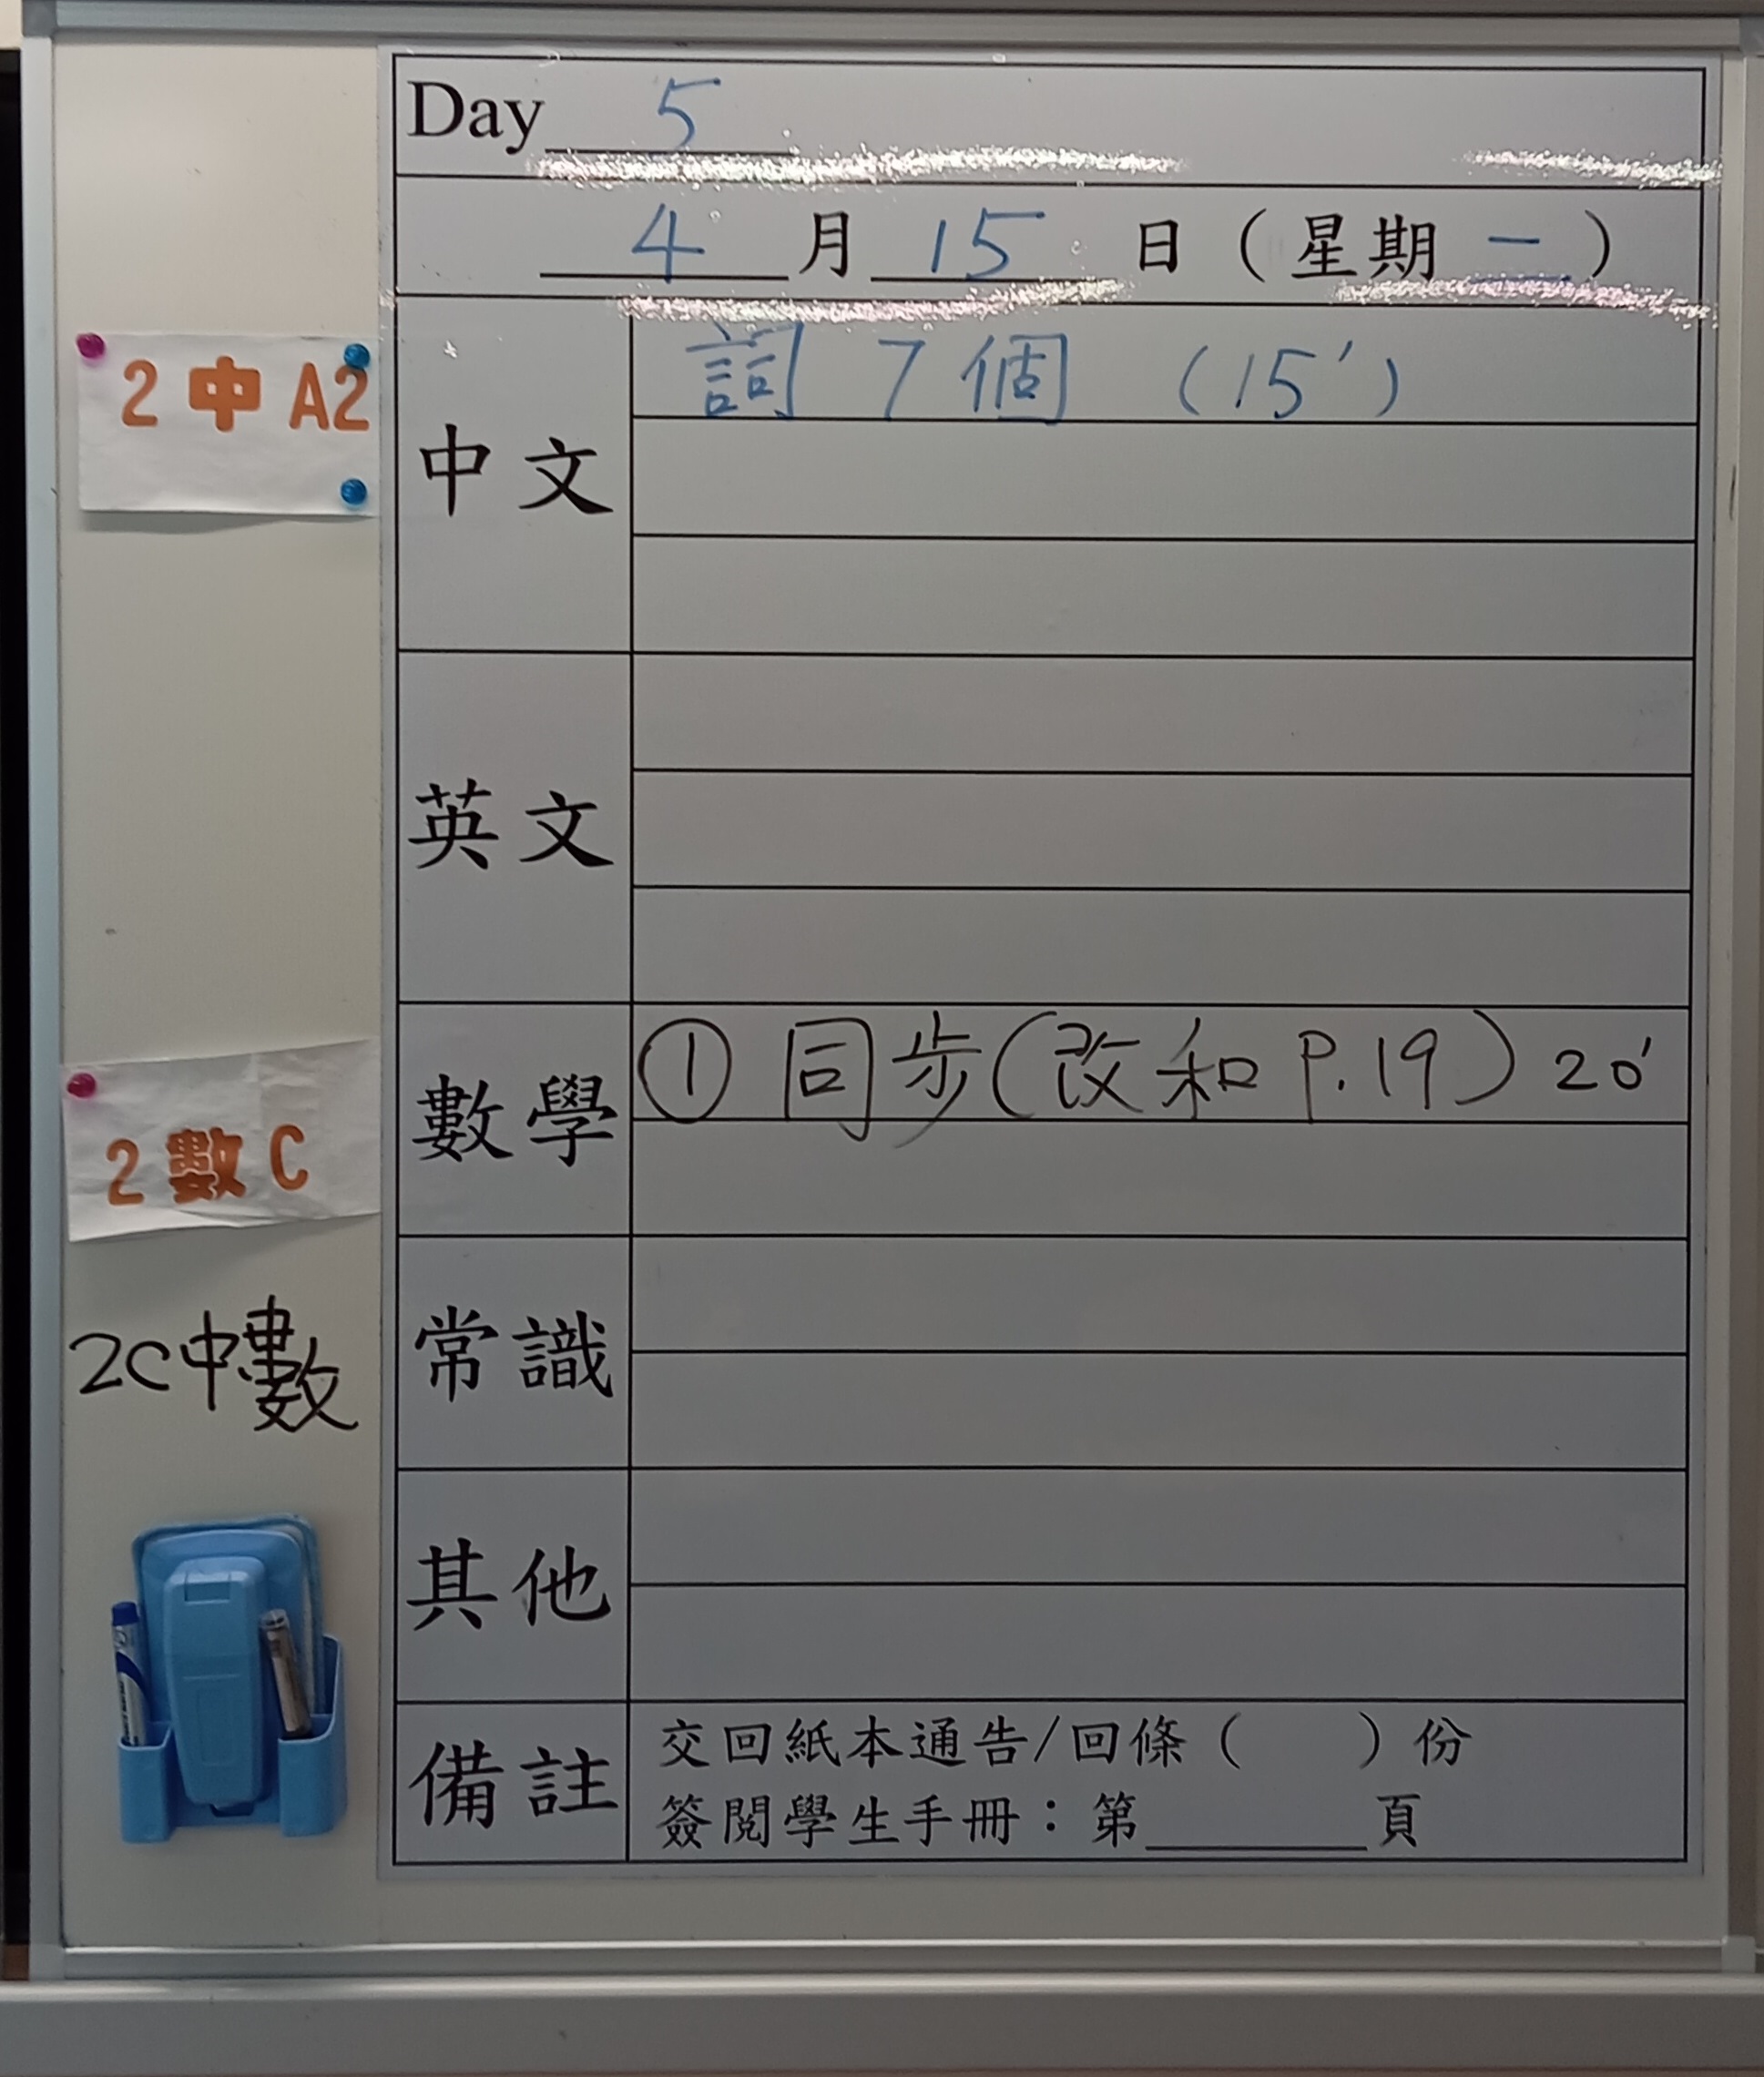 Day 5
4 月 15 日 ( 星期 一 )
2 中 A2
中文
詞 7 個 (15')
英文
2 數 C
數學
① 同步(改和 P.19) 20'
2C中數
常識
其他
備註
交回紙本通告/回條 ( ) 份
簽閱學生手冊：第______頁